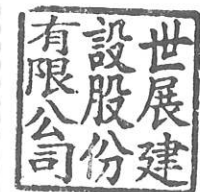 世展建
設股份
有限公司